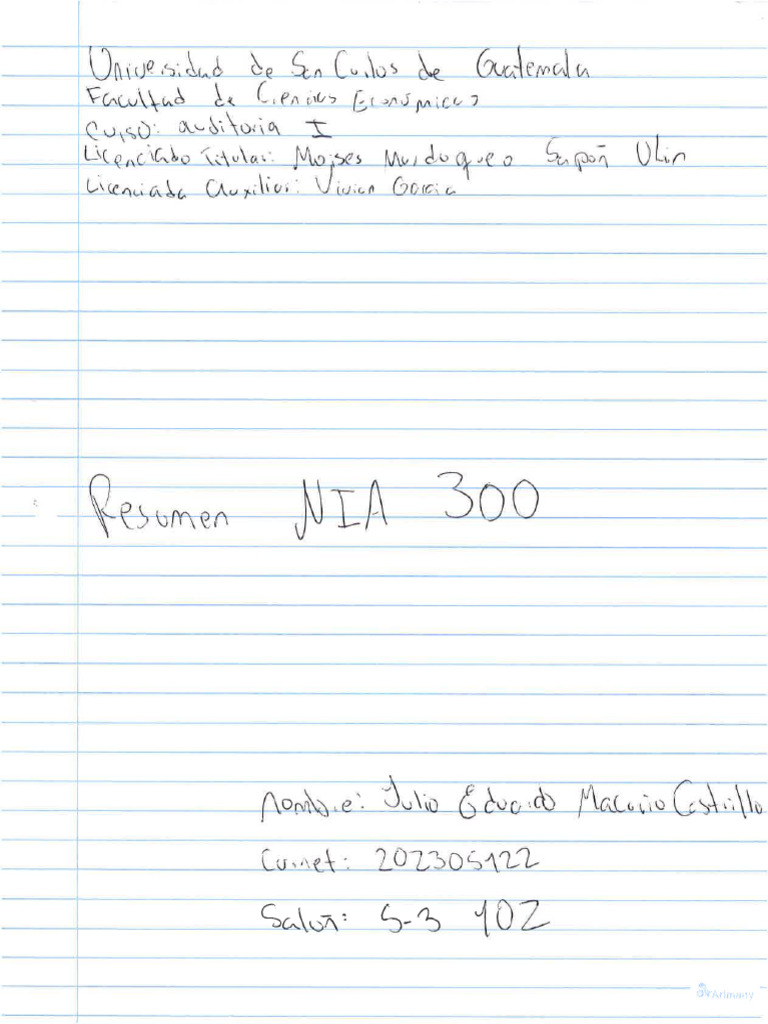 Universidad de San Carlos de Guatemala
Facultad de Ciencias Económicas
Curso: auditoria I
Licenciado Titular: Moises Mardoqueo Sapón Ulin
Licenciada Auxiliar: Vivian Garcia
Resumen NIA 300
nombre: Julio Eduardo Macario Castrillo
Carnet: 202305122
Salón: S-3 102
Arimany